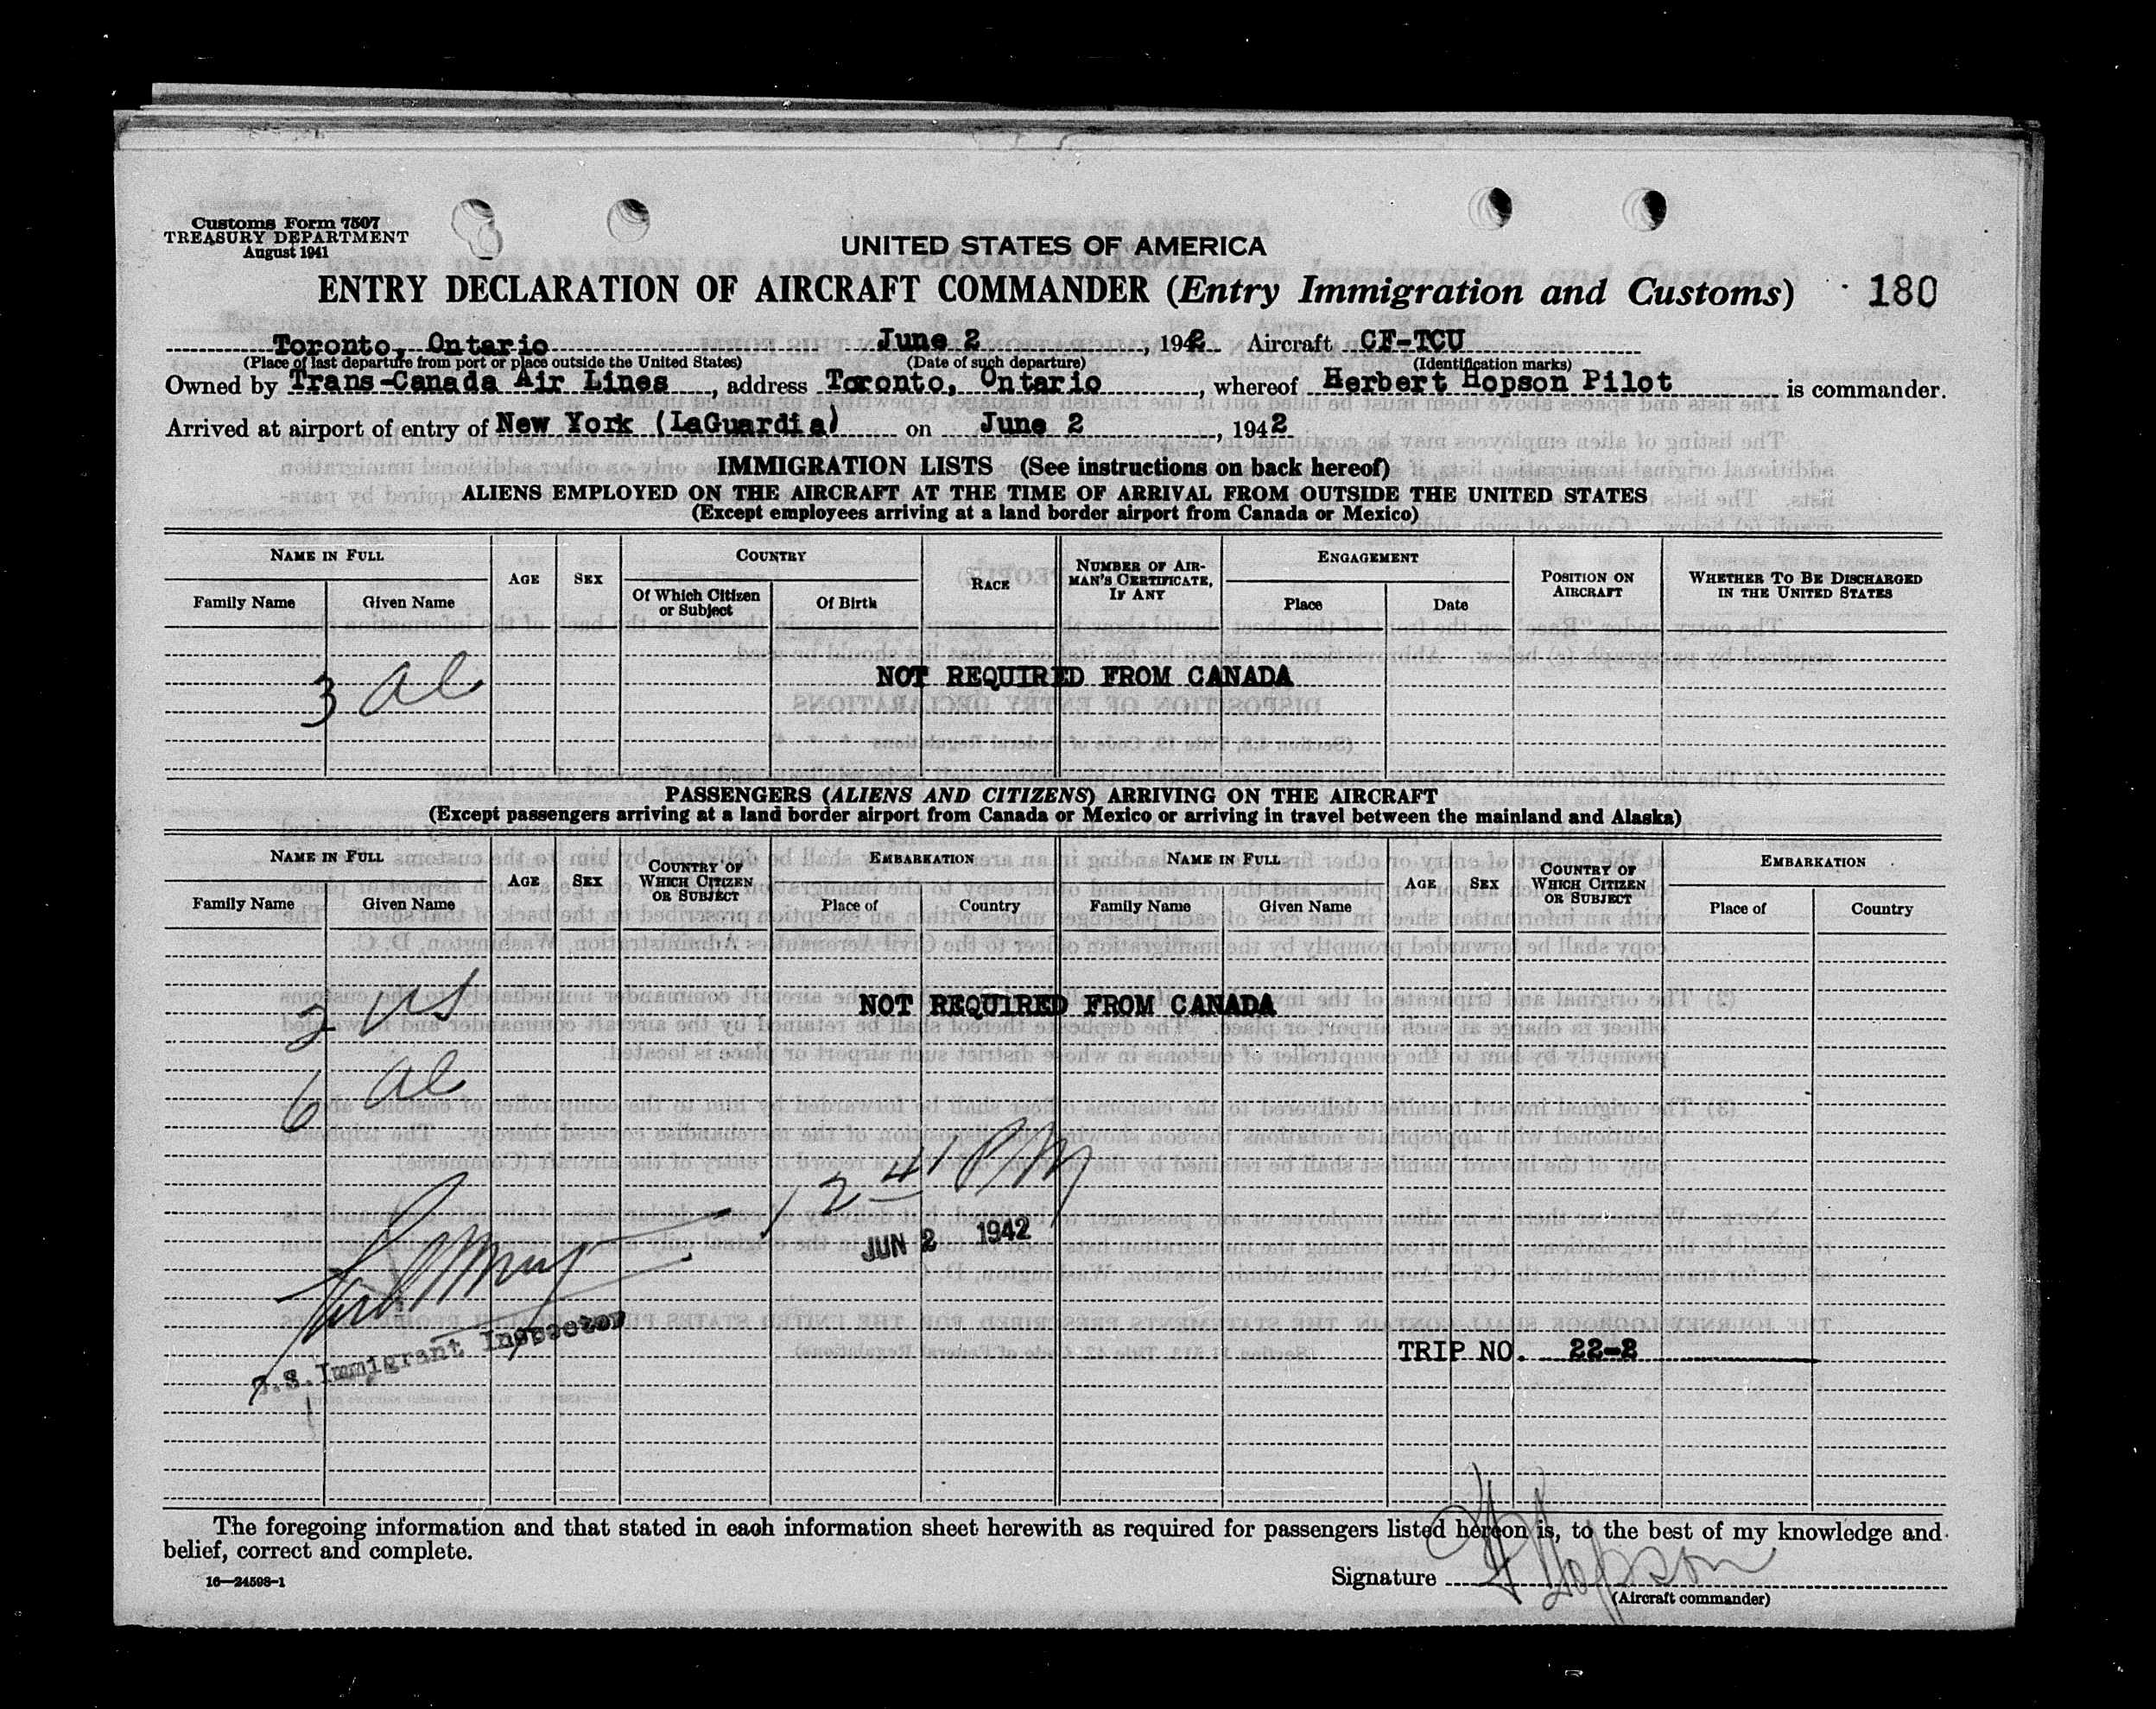 Customs Form 7507
TREASURY DEPARTMENT
August 1941
UNITED STATES OF AMERICA
ENTRY DECLARATION OF AIRCRAFT COMMANDER (Entry Immigration and Customs) 180
Toronto, Ontario June 2, 1942 Aircraft CF-TCU
(Place of last departure from port or place outside the United States) (Date of such departure) (Identification marks)
Owned by Trans-Canada Air Lines, address Toronto, Ontario, whereof Herbert Hopson Pilot is commander.
Arrived at airport of entry of New York (LaGuardia) on June 2, 1942
IMMIGRATION LISTS (See instructions on back hereof)
ALIENS EMPLOYED ON THE AIRCRAFT AT THE TIME OF ARRIVAL FROM OUTSIDE THE UNITED STATES
(Except employees arriving at a land border airport from Canada or Mexico)
NAME IN FULL AGE SEX COUNTRY RACE NUMBER OF AIRMAN'S CERTIFICATE, IF ANY ENGAGEMENT POSITION ON AIRCRAFT WHETHER TO BE DISCHARGED IN THE UNITED STATES
Family Name Given Name Of Which Citizen or Subject Of Birth Place Date
3 al NOT REQUIRED FROM CANADA
PASSENGERS (ALIENS AND CITIZENS) ARRIVING ON THE AIRCRAFT
(Except passengers arriving at a land border airport from Canada or Mexico or arriving in travel between the mainland and Alaska)
NAME IN FULL AGE SEX COUNTRY OF WHICH CITIZEN OR SUBJECT EMBARKATION NAME IN FULL AGE SEX COUNTRY OF WHICH CITIZEN OR SUBJECT EMBARKATION
Family Name Given Name Place of Country Family Name Given Name Place of Country
2 US NOT REQUIRED FROM CANADA
6 al
12-41 PM
JUN 2 1942
U.S. Immigrant Inspector
TRIP NO. 22-2
The foregoing information and that stated in each information sheet herewith as required for passengers listed hereon is, to the best of my knowledge and
belief, correct and complete.
16—24598-1
Signature H Hopson
(Aircraft commander)